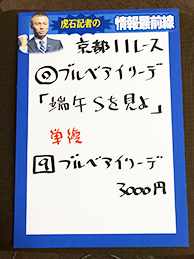 虎石記者の
情報最前線
京都11レース
◎ブルベアイリーデ
「端午Sを見よ」
単複
9 ブルベアイリーデ
3000円